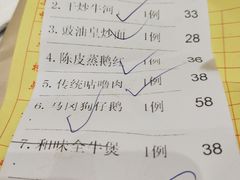 2. 干炒牛河 1例 33
3. 豉油皇炒面 1例 28
4. 陈皮蒸鹅 1例 36
5. 传统咕噜肉 1例 38
6. 马冈狗仔鹅 1例 58
7. 和味全牛煲 1例 38